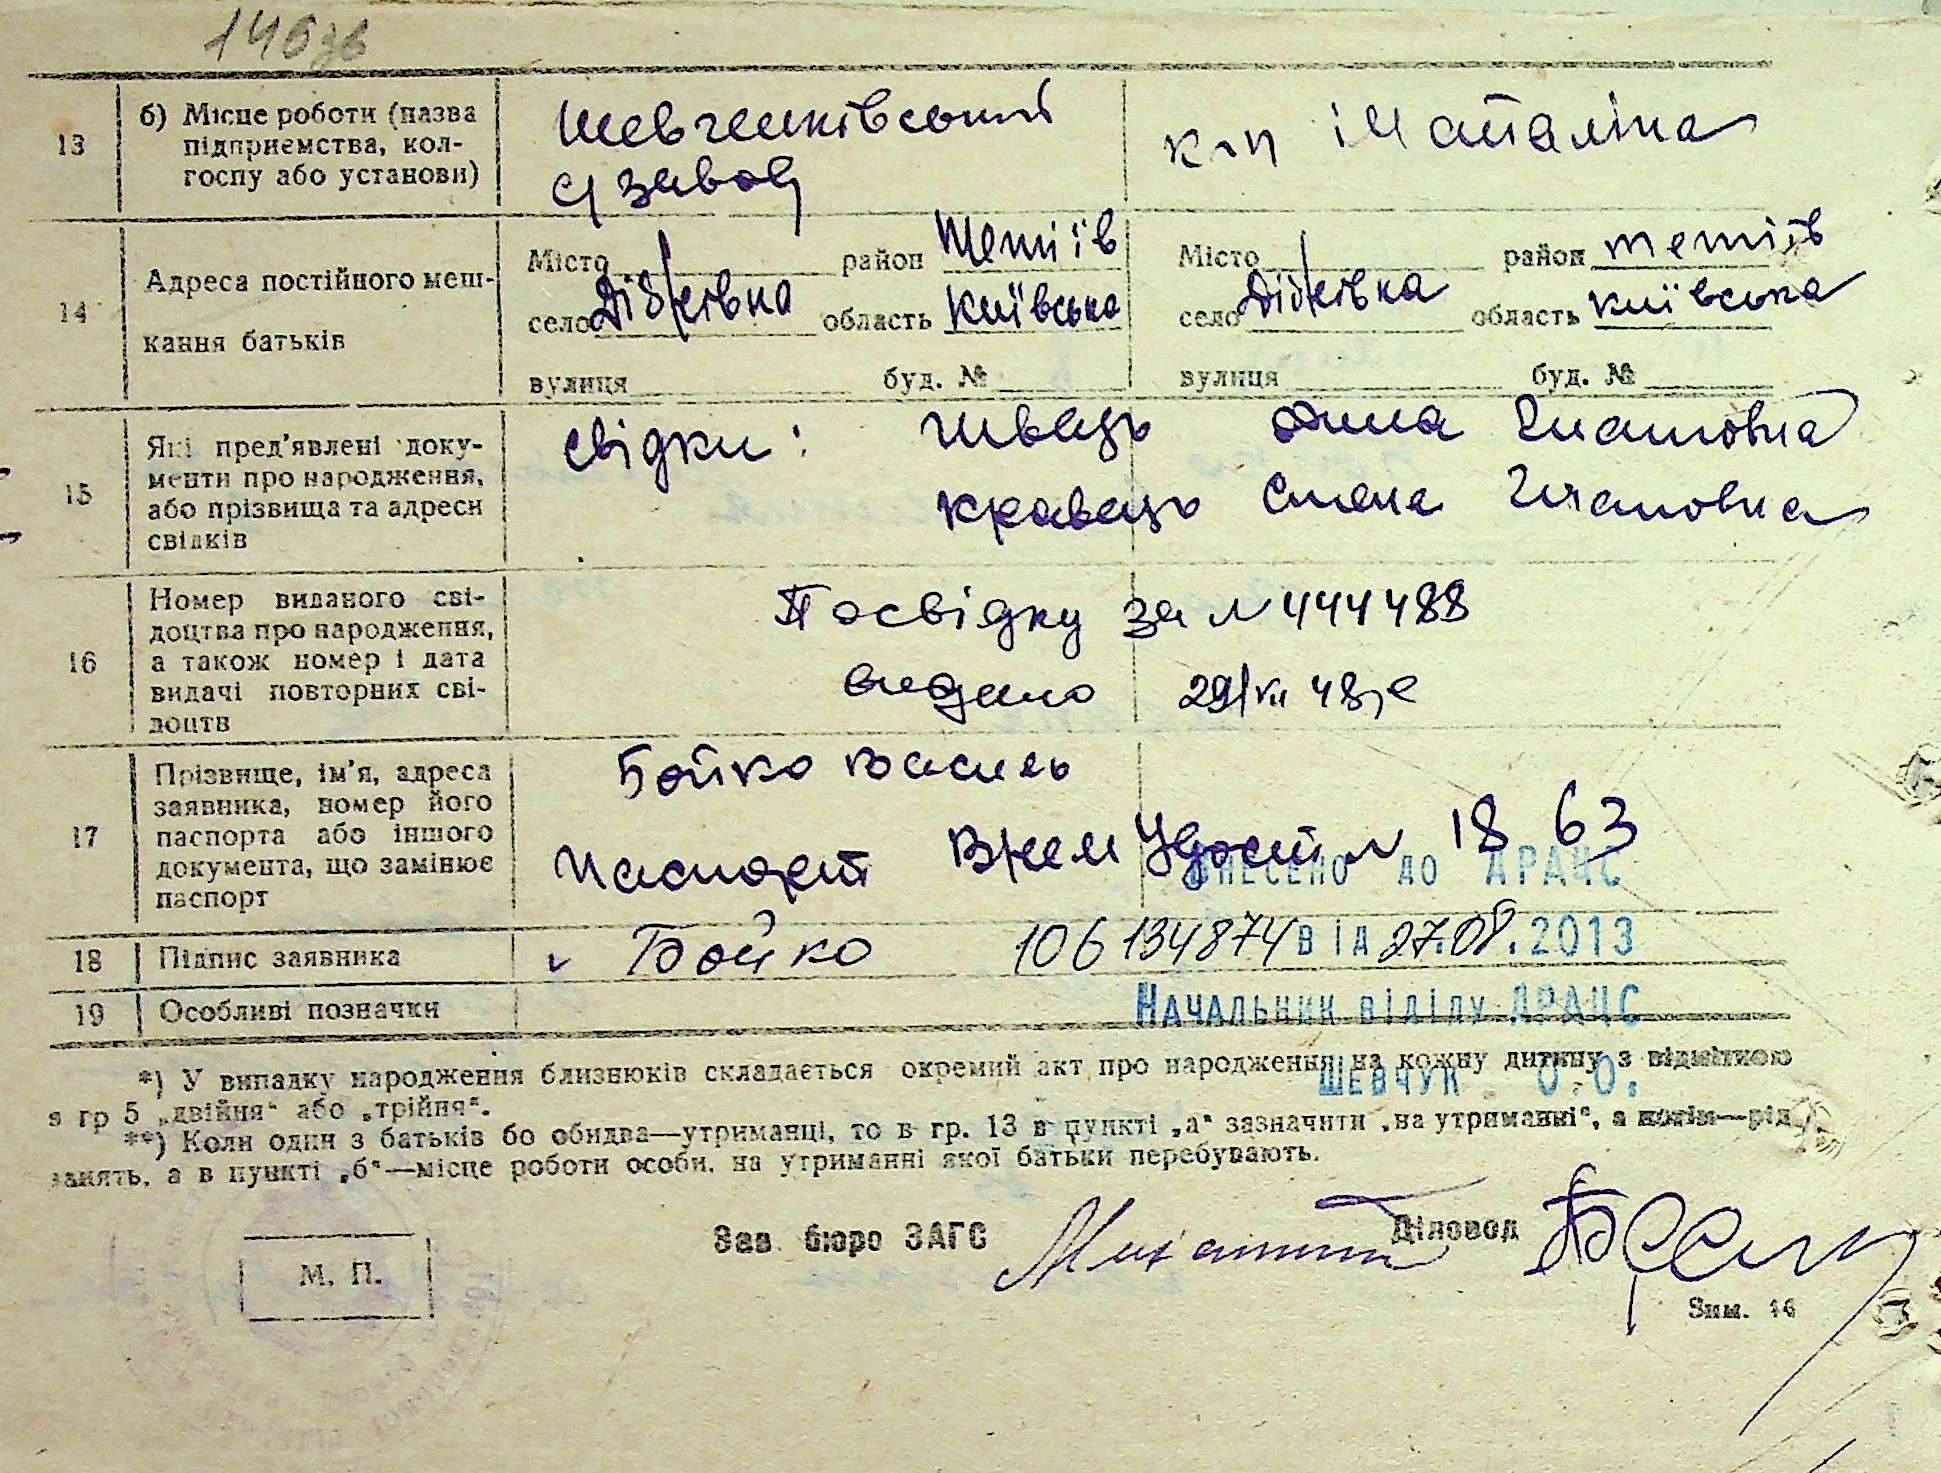 146зв
13
б) Місце роботи (назва
підприємства, кол-
госпу або установи)
Шевченківський
с/завод
к-п ім Сталіна
14
Адреса постійного меш-
кання батьків
Місто район Тетіїв
село Дібрівка область Київська
вулиця буд. №
Місто район Тетіїв
село Дібрівка область Київська
вулиця буд. №
15
Які пред'явлені доку-
менти про народження,
або прізвища та адреси
свідків
свідки: Швець Ганна Гнатовна
Кравець Олена Гнатовна
16
Номер виданого сві-
доцтва про народження,
а також номер і дата
видачі повторних сві-
доцтв
Посвідку за № 444488
видано 48 р
17
Прізвище, ім'я, адреса
заявника, номер його
паспорта або іншого
документа, що замінює
паспорт
Бойко Василь
Паспорт Врем Удост № 18 63
Внесено до ДРАЦС
18
Підпис заявника
Бойко
106134874 від 27.08.2013
19
Особливі позначки
Начальник віділу ДРАЦС
Шевчук О.О.
*) У випадку народження близнюків складається окремий акт про народження на кожну дитину з відміткою
в гр 5 „двійня“ або „трійня“.
**) Коли один з батьків бо обидва—утриманці, то в гр. 13 в пункті „а“ зазначити „на утриманні“, а потім—рід
занять, а в пункті „б“—місце роботи особи, на утриманні якої батьки перебувають.
Зав. бюро ЗАГС
Діловод
М. П.
Зам. 16